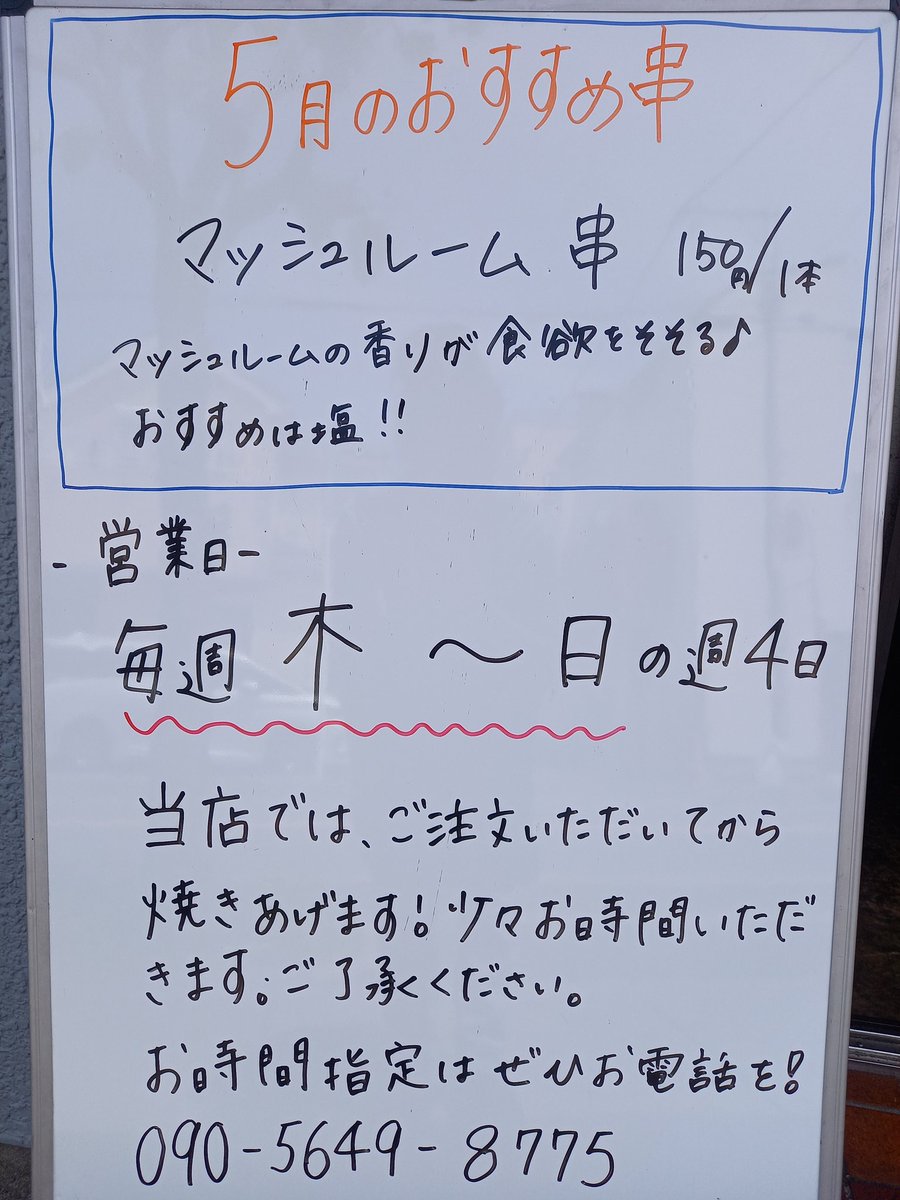 5月のおすすめ串
マッシュルーム 串 150円/1本
マッシュルームの香りが食欲をそそる♪
おすすめは塩!!
-営業日-
毎週 木 〜 日の週4日
当店では、ご注文いただいてから
焼きあげます!少々お時間いただ
きます。ご了承ください。
お時間指定はぜひお電話を!
090-5649-8775